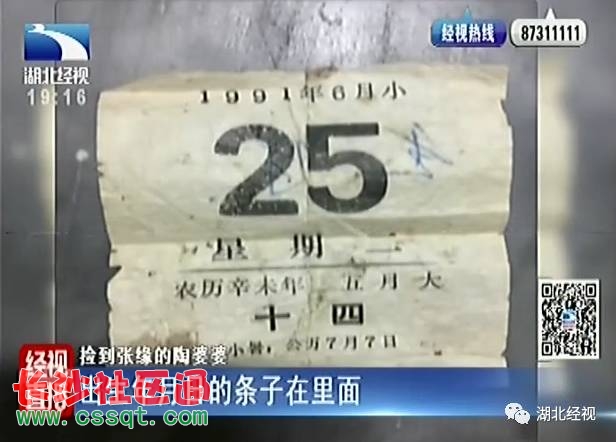 湖北经视
19:16
经视热线 87311111
1991年6月小
25
星期二
农历辛未年 五月大
十四
小暑:公历7月7日
经视
捡到张缘的陶婆婆
的条子在里面
长沙社区通
www.cssqt.com
湖北经视